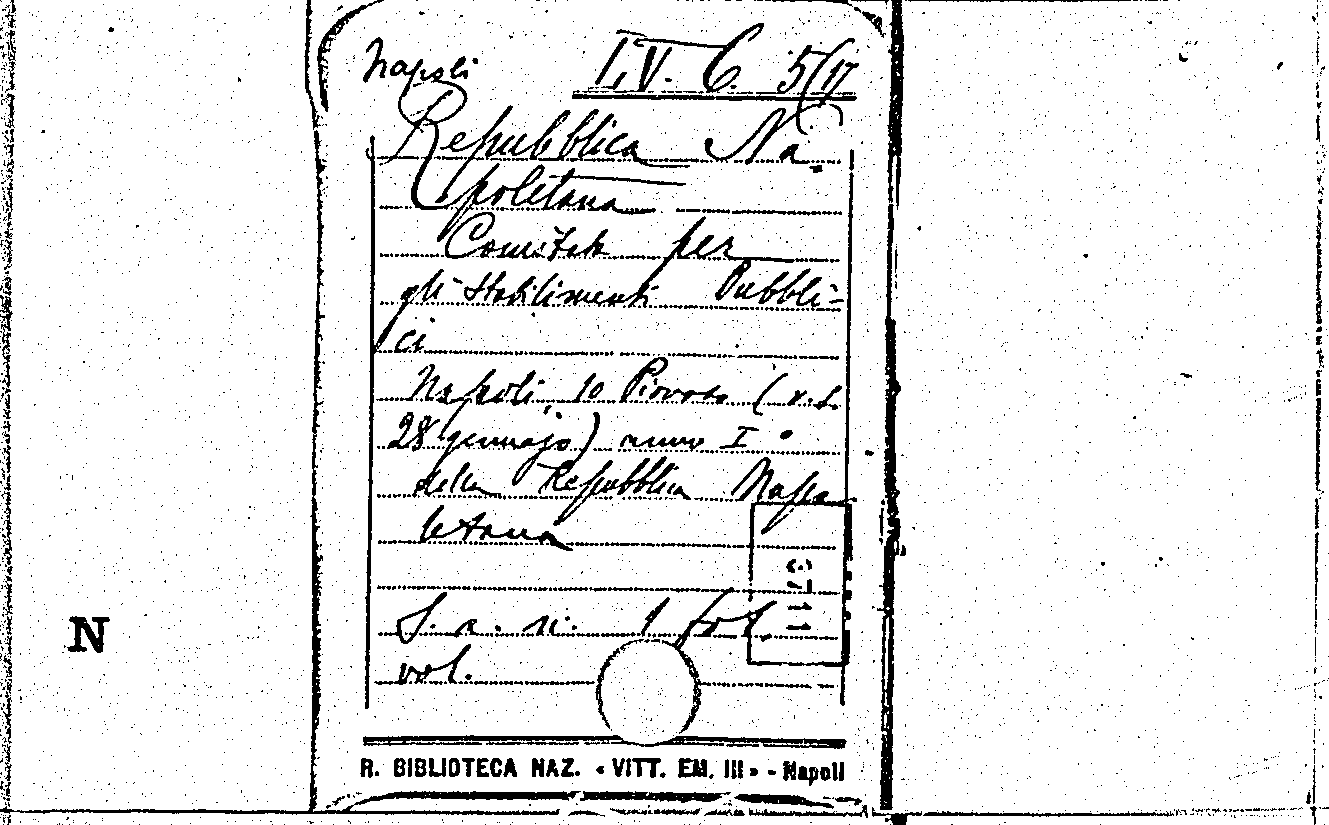 Napoli L.V. C. 5/17
Repubblica Na
poletana
Comitato per
gli Stabilimenti Pubbli-
ci
Napoli, 10 Piovoso (v.s.
28 gennajo) anno I°
della Repubblica Napo
letana
S. a. n. 1 fol.
vol.
3711
N
R. BIBLIOTECA NAZ. « VITT. EM. III » - Napoli